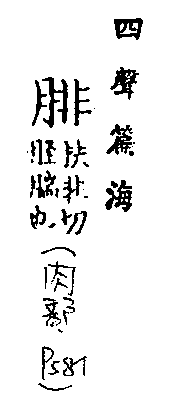 四聲篇海
腓
扶非切
脛腨也
(肉部 P581)